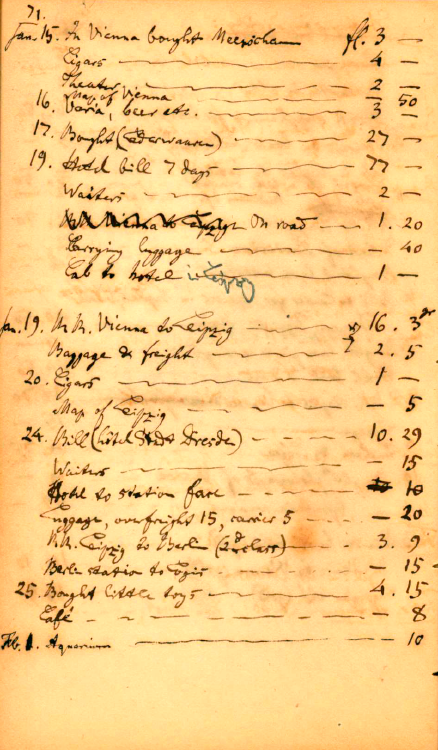 71.
Jan. 15. In Vienna bought Meerschaum fl. 3 —
Cigars 4 —
Theater 2 —
Map of Vienna — 50
16. Varia, beer etc. 3 —
17. Bought (Lederwaaren) 27 —
19. Hotel bill 7 days 77 —
Waiters 2 —
On road 1. 20
Carrying luggage — 40
Cab to hotel in Leipzig 1 —
Jan. 19. R.R. Vienna to Leipzig 16. 3
Baggage & freight 2. 5
20. Cigars 1 —
Map of Leipzig — 5
24. Bill (hôtel Stadt Dresden) 10. 29
Waiters — 15
Hotel to station fare 10
Luggage, overfreight 15, carrier 5 — 20
R.R. Leipzig to Berlin (2d class) 3. 9
Berlin station to Logis — 15
25. Bought little toys 4. 15
Café — 8
Feb. 1. Aquarium 10